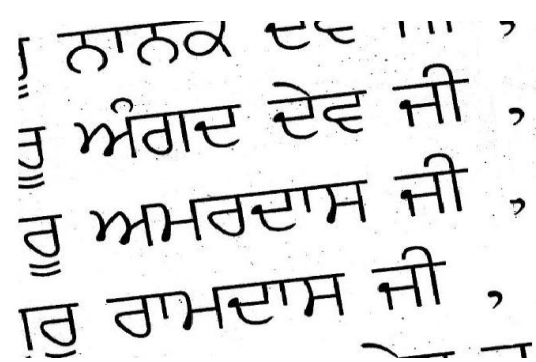 ਰੂ ਨਾਨਕ ਦੇਵ ਜੀ ,
ਰੂ ਅੰਗਦ ਦੇਵ ਜੀ ,
ਰੂ ਅਮਰਦਾਸ ਜੀ ,
ਰੂ ਰਾਮਦਾਸ ਜੀ ,